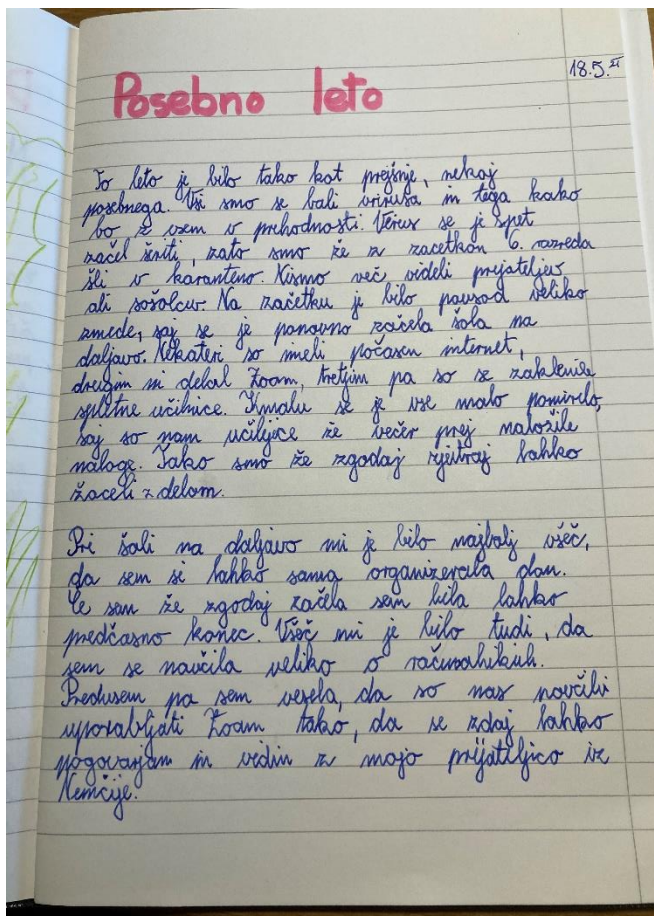 18.5.21
Posebno leto
To leto je bilo tako kot prejšnje, nekaj
posebnega. Vsi smo se bali virusa in tega kako
bo z vsem v prihodnosti. Virus se je spet
začel širiti, zato smo že z začetkom 6. razreda
šli v karanteno. Nismo več videli prijateljev
ali sošolcev. Na začetku je bilo povsod veliko
zmede, saj se je ponovno začela šola na
daljavo. Nekateri so imeli počasen internet,
drugim ni delal Zoom, tretjim pa so se zaklenile
spletne učilnice. Kmalu se je vse malo pomirilo,
saj so nam učiteljice že večer prej naložile
naloge. Tako smo že zgodaj zjutraj lahko
začeli z delom.
Pri šoli na daljavo mi je bilo najbolj všeč,
da sem si lahko sama organizirala dan.
Če sem že zgodaj začela sem bila lahko
predčasno konec. Všeč mi je bilo tudi, da
sem se naučila veliko o računalnikih.
Predvsem pa sem vesela, da so nas navčili
uporabljati Zoom tako, da se zdaj lahko
pogovarjam in vidim z mojo prijateljico iz
Nemčije.